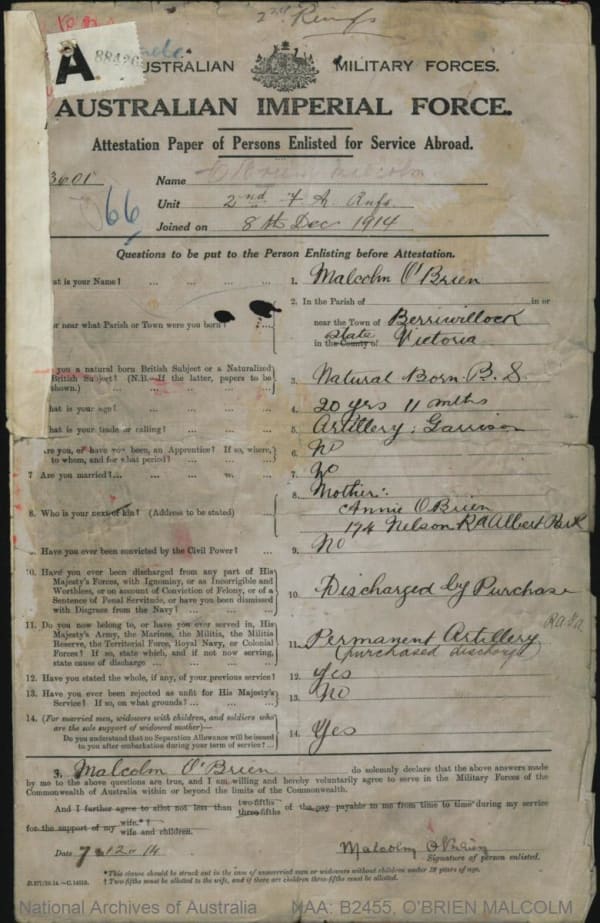 2nd Reinfs
A
88426
AUSTRALIAN MILITARY FORCES.
AUSTRALIAN IMPERIAL FORCE.
Attestation Paper of Persons Enlisted for Service Abroad.
3601 Name O'Brien Malcolm
66 Unit 2nd F A Rnfs.
Joined on 8th Dec 1914
Questions to be put to the Person Enlisting before Attestation.
at is your Name? ... ... ... ... 1. Malcolm O'Brien
2. In the Parish of in or
or near what Parish or Town were you born? ?... near the Town of Berriwillock
in the County of State Victoria
you a natural born British Subject or a Naturalized
British Subject? (N.B.—If the latter, papers to be
shown.) ... ... ... ... 3. Natural Born B. S.
hat is your age? ... ... ... ... 4. 20 yrs 11 mths
hat is your trade or calling? ... ... ... 5. Artillery: Garrison
Are you, or have you been, an Apprentice? If so, where,
to whom, and for what period? ... ... 6. No
7 Are you married?... ... ... ... 7. No
8. Mother:
8. Who is your next of kin? (Address to be stated) ... Annie O'Brien
174 Nelson Rd Albert Park
9. Have you ever been convicted by the Civil Power? ... 9. No
10. Have you ever been discharged from any part of His
Majesty's Forces, with Ignominy, or as Incorrigible and
Worthless, or on account of Conviction of Felony, or of a
Sentence of Penal Servitude, or have you been dismissed
with Disgrace from the Navy? ... ... 10. Discharged by Purchase
11. Do you now belong to, or have you ever served in, His
Majesty's Army, the Marines, the Militia, the Militia
Reserve, the Territorial Force, Royal Navy, or Colonial
Forces? If so, state which, and if not now serving,
state cause of discharge ... ... ... 11. Permanent Artillery
(purchased discharge)
12. Have you stated the whole, if any, of your previous service? 12. Yes
13. Have you ever been rejected as unfit for His Majesty's
Service? If so, on what grounds? ... ... 13. No
14. (For married men, widowers with children, and soldiers who
are the sole support of widowed mother)—
Do you understand that no Separation Allowance will be issued
to you after embarkation during your term of service? ... 14. Yes
I, Malcolm O'Brien do solemnly declare that the above answers made
by me to the above questions are true, and I am willing and hereby voluntarily agree to serve in the Military Forces of the
Commonwealth of Australia within or beyond the limits of the Commonwealth.
And I further agree to allot not less than two-fifths three-fifths of the pay payable to me from time to time during my service
for the support of my wife.*† wife and children.
Date 7.12.14 Malcolm O'Brien
Signature of person enlisted.
*This clause should be struck out in the case of unmarried men or widowers without children under 18 years of age.
† Two fifths must be allotted to the wife, and if there are children three-fifths must be allotted.
National Archives of Australia NAA: B2455, O'BRIEN MALCOLM